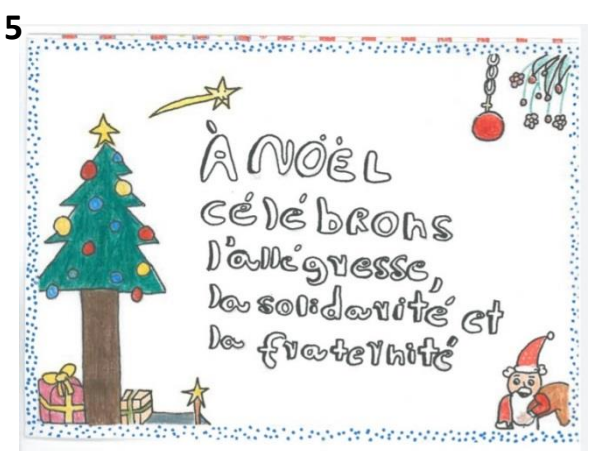 5
À NOËL
célébRons
l'alléguesse,
la solidarité et
la fraternité